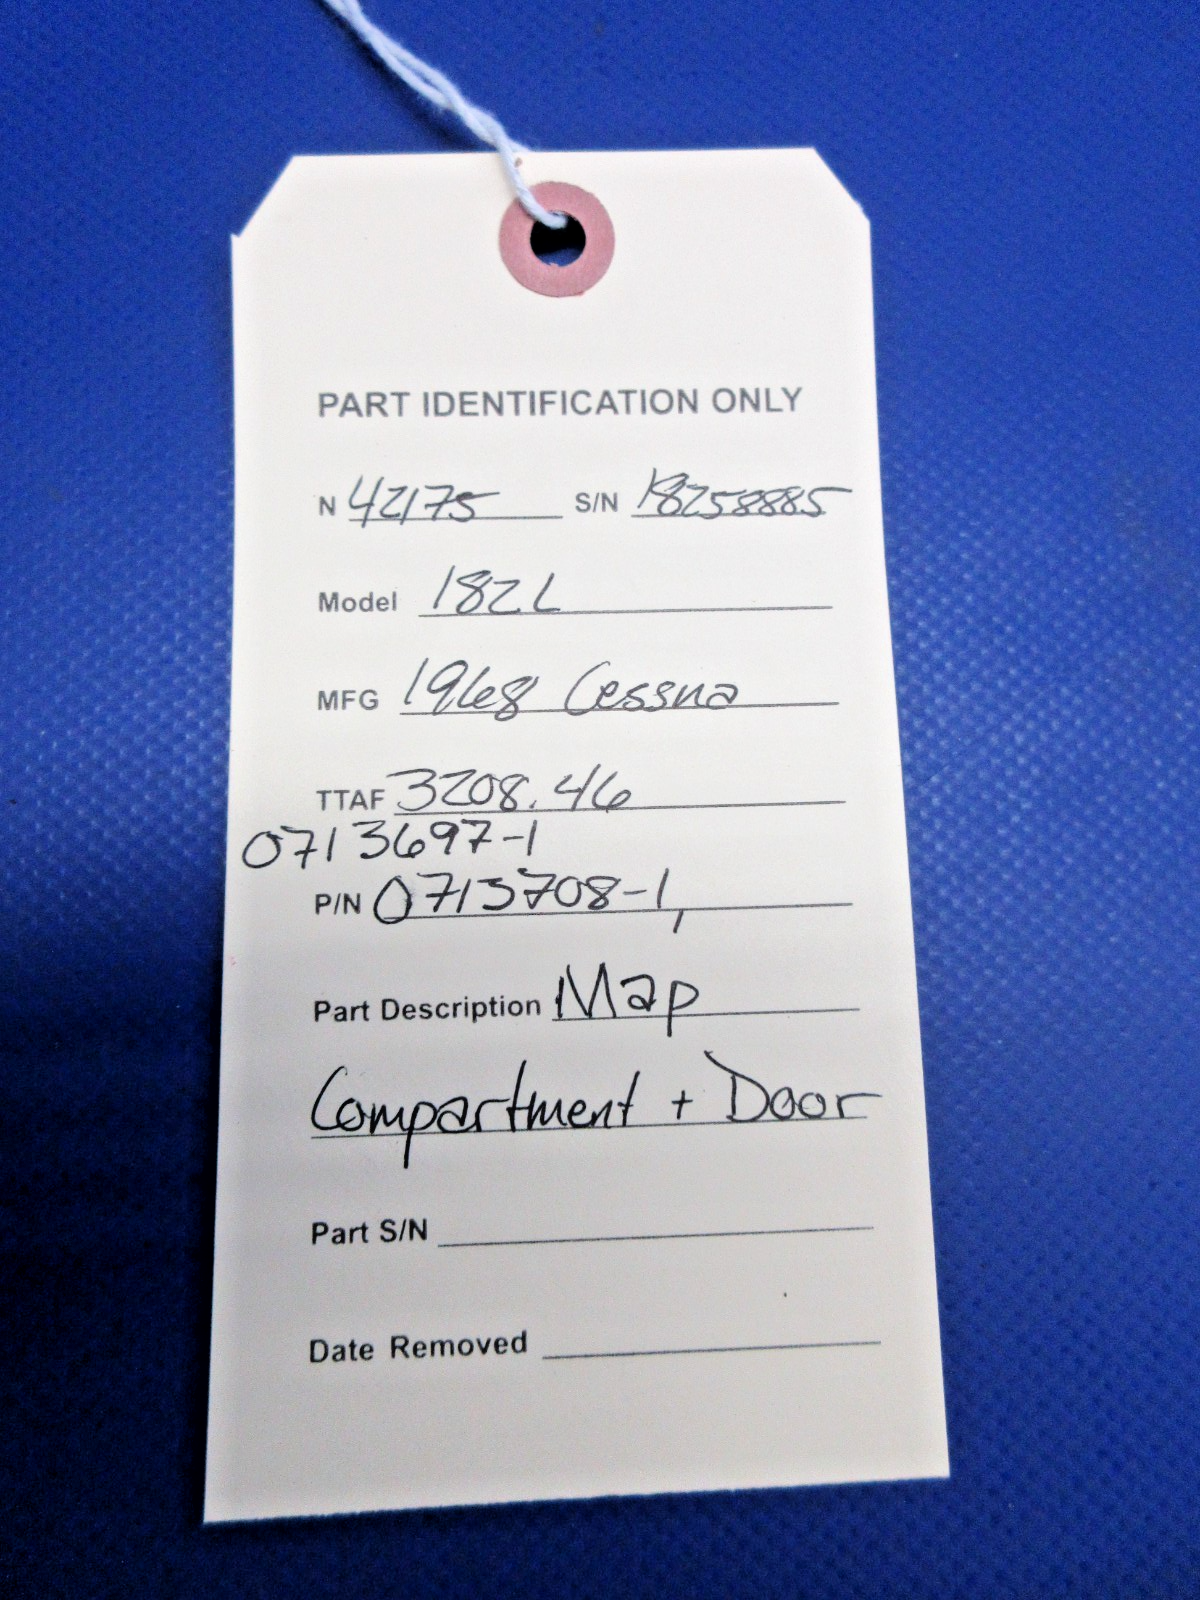 PART IDENTIFICATION ONLY
N 42175 S/N 18258885
Model 182L
MFG 1968 Cessna
TTAF 3208.46
0713697-1
P/N 0713708-1,
Part Description Map
Compartment + Door
Part S/N
Date Removed